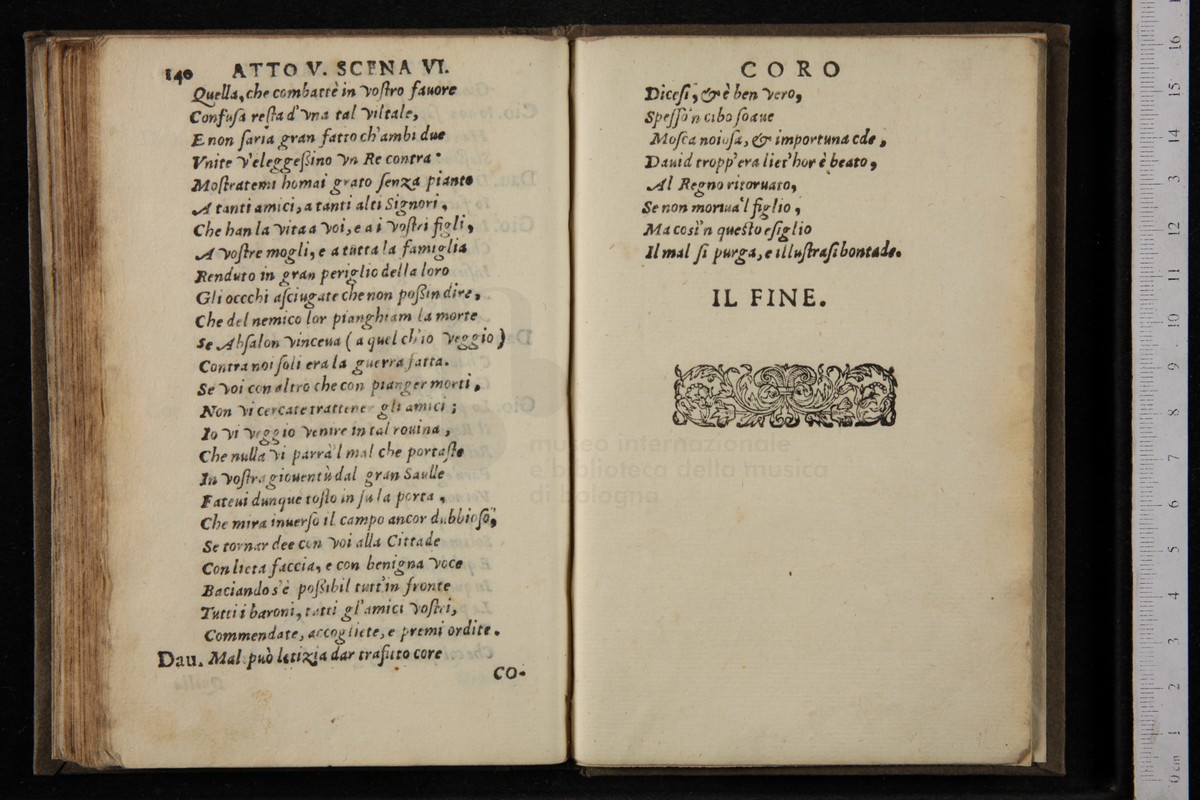 140 ATTO V. SCENA VI.
Quella, che combattè in voſtro fauore
Confuſa reſta d'vna tal viltate,
E non ſaria gran fatto ch'ambi due
Vnite v'eleggeßino vn Re contra:
Moſtratemi homai grato ſenza pianto
A tanti amici, a tanti alti Signori,
Che han la vita a voi, e a i voſtri figli,
A voſtre mogli, e a tutta la famiglia
Renduto in gran periglio della loro
Gli occchi aſciugate che non poßin dire,
Che del nemico lor pianghiam la morte
Se Abſalon vinceua (a quel ch'io veggio)
Contra noi ſoli era la guerra fatta.
Se voi con altro che con pianger morti,
Non vi cercate trattener gli amici;
Io vi veggio venire in tal rouina,
Che nulla vi parrà'l mal che portaſte
In voſtra giouentù dal gran Saulle
Fateui dunque toſto in ſu la porta,
Che mira inuerſo il campo ancor dubbioſo,
Se tornar dee con voi alla Cittade
Con lieta faccia, e con benigna voce
Baciando s'è poßibil tutt'in fronte
Tutti i baroni, tutti gl'amici voſtri,
Commendate, accogliete, e premi ordite.
Dau. Mal può letizia dar trafitto core
CO-
CORO
Diceſi, & è ben vero,
Speſſo'n cibo ſoaue
Moſca noioſa, & importuna cde,
Dauid tropp'era liet'hor è beato,
Al Regno ritoruato,
Se non moriua'l figlio,
Ma coſi'n queſto eſiglio
Il mal ſi purga, e illuſtraſi bontade.
IL FINE.
museo internazionale
e biblioteca della musica
di bologna